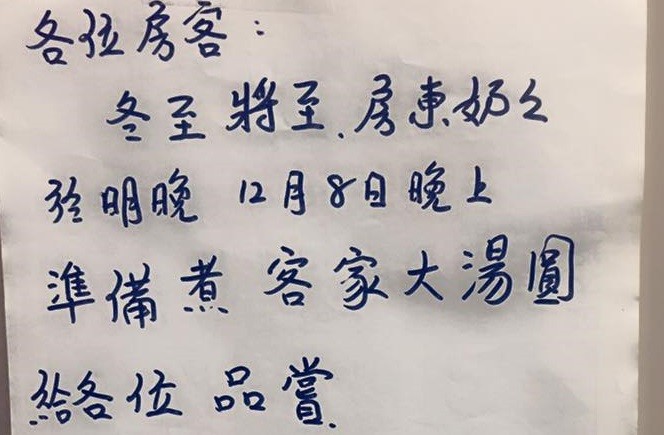 各位房客：
冬至將至、房東奶々
於明晚 12月8日晚上
準備煮 客家大湯圓
給各位 品嘗